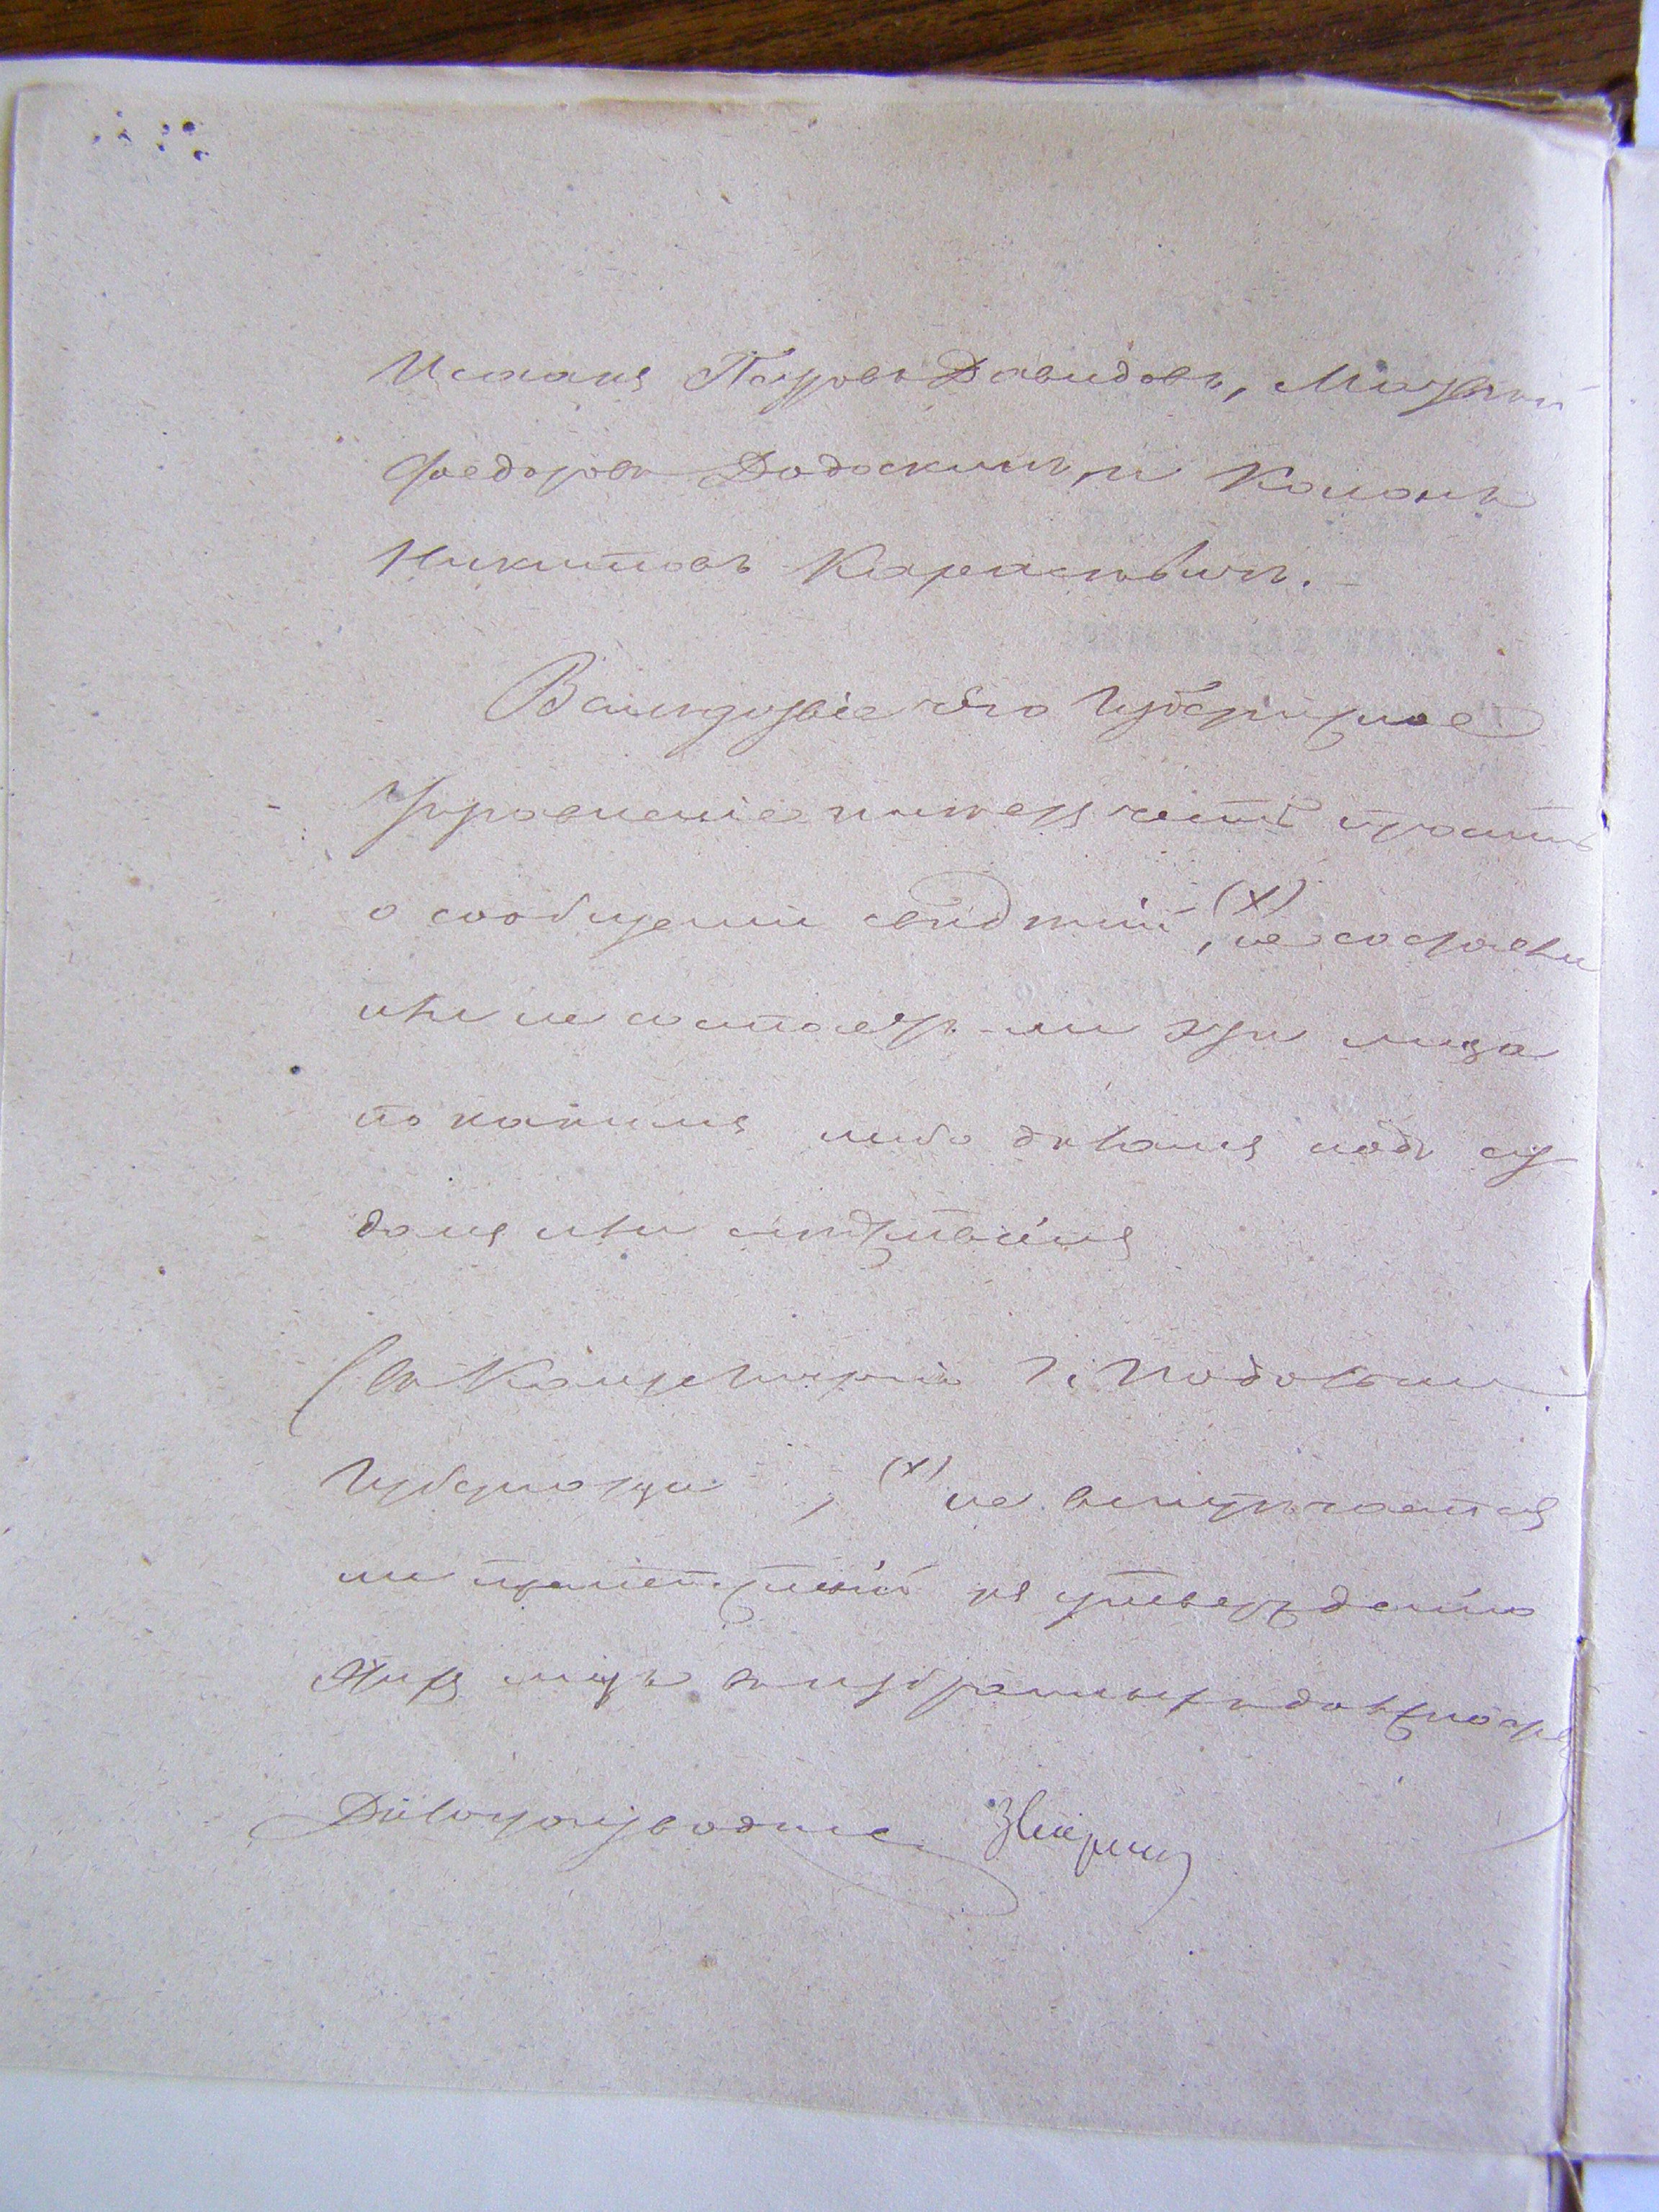 Исаакъ Петровъ Давидовъ, Матвѣй
Федоровъ Додоскинъ, и
Никитовъ
Вслѣдствіе сего Губернское
Управленіе имѣетъ честь просить
о сообщеніи свѣдѣній, (х) не состояли
или не состоятъ ли эти лица
по какимъ либо дѣламъ подъ су
домъ или слѣдствіемъ
(въ Канцелярію Г. Подольск
Губернатора, (х) не встрѣчается
ли препятствій къ утвержденію
этихъ лицъ въ избранныхъ должностя
Дѣлопроизводитель